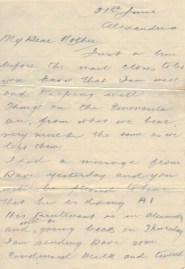 21st June
Alexandria
My Dear Mother
Just a line
before the mail closes to let
you know that I am well
and keeping well
Things on the Peninsula
are, from what we hear,
very much the same as we
left them
I had a message from
Dave yesterday and you
will be pleased to hear
that he is doing A1
His Lieutenant is in
and going back on Thursday
I am sending Dave some
Condensed Milk and